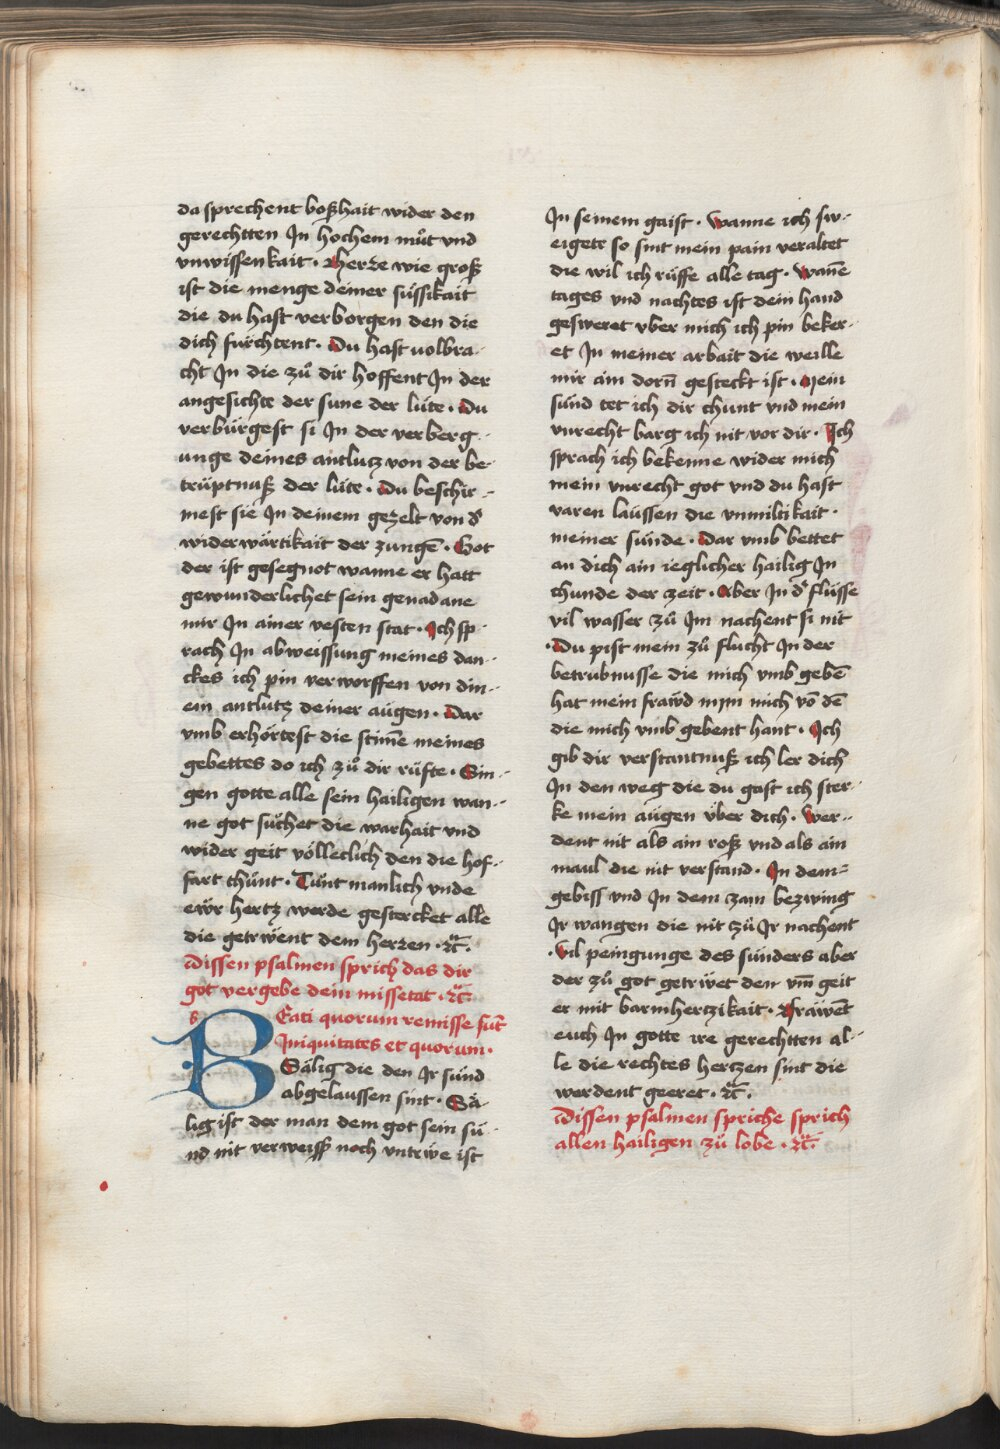 da sprechent boßhait wider den
gerechtten Jn hochem můt vnd
vnwissenkait · Herre wie groß
ist die menge deiner süssikait
die du hast verborgen den die
dich fürchtent · Du hast uolbra-
cht Jn die zů dir hoffent Jn der
angesichte der sune der lüte · Du
verbürgest si Jn der verberg-
unge deines antlutz von der be-
trüptnuß der lüte · Du beschir-
mest sie Jn deinem gezelt von d᷑
widerwärtikait der zungē · Got
der ist gesegnot wanne er hatt
gewunderlichet sein genad ane
mir Jn ainer vesten stat · Jch sp-
rach Jn abweissung meines dan-
ckes ich pin verworffen von din-
em antlutz deiner augen · Dar
vmb erhörtest die stim̄e meines
gebettes do ich zů dir rüfte · Sin-
gen gotte alle sein hailigen wan-
ne got süchet die warhait vnd
wider geit völleclich den die hof-
fart thünt · Tůnt manlich vnde
ewr hertz werde gestercket alle
die getrẅent dem herren · ꝛc̄ ·
Dissen psalmen sprich das dir
got vergebe dein missetat · ꝛc̄ ·
B Eati quorum remisse sūt
Jniquitates et quorum ·
Sälig die den Jr sünd
abgelaussen sint · Sä-
lig ist der man dem got sein sü-
nd nit verweisß noch vntrẅe ist
Jn seinem gaist · Wanne ich sw-
eigetr so sint mein pain veraltet
die wil ich rüffe alle tag · Wan̄e
tages vnd nachtes ist dein hand
gesweret vber mich ich pin beker-
et Jn meiner arbait die weille
mir ain dorn̄ gesteckt ist · Mein
sünd tet ich dir chunt vnd mein
vnrecht barg ich nit vor dir · Jch
sprach ich bekenne wider mich
mein vnrecht got vnd du hast
varen laussen die vnmiltikait ·
meiner sünde · Dar vmb bettet
an dich ain ieglicher hailig Jn
chunde der zeit · Aber Jn d᷑ flüsse
vil wasser zů Jm nachent si nit
· Du pist mein zů flucht Jn der
betrübnusse die mich vmb gebē
hat mein frawd nym mich vō dē
die mich vmb gebent hant · Jch
gib dir verstantnuß ich ler dich
Jn den weg die du gast ich ster-
ke mein augen über dich · Wer-
dent nit als ain roß vnd als ain
maul die nit verstand · Jn dem
gebiss vnd Jn dem zam bezwing
Jr wangen die nit zů Jr nachent
· Vil peingunge des sünders aber
der zů got getrẅet den vm̄ geit
er mit barmhertzikait · Fräwēt
euch Jn gotte ire gerechtten al-
le die rechtes hertzen sint die
werdent geeret · ꝛc̄ ·
Dissen psalmen spriche sprich
allen hailigen zů lobe · ꝛc̄ ·